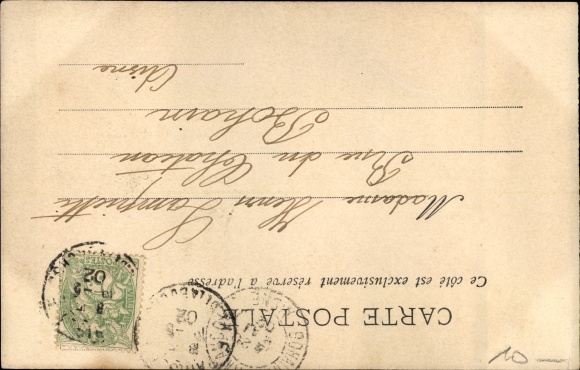 CARTE POSTALE
Ce côté est exclusivement réservé à l'adresse
Madame Henri
Rue du Château
Bohain
Aisne
02
02
10 —